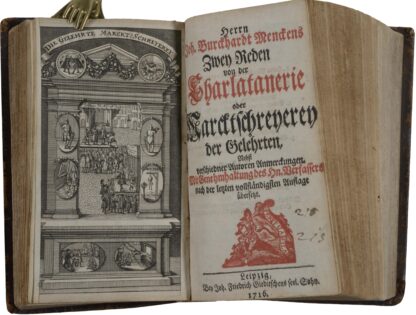 DIE GELEHRTE MARCKT-SCHREYEREY
Herrn
Joh. Burckhardt Menckens
Zwey Reden
von der
Charlatanerie
oder
Marcktschreyerey
der Gelehrten,
Nebst
verschiedner Autoren Anmerckungen.
Mit Genehmhaltung des Hn. Verfassers
nach der letzten vollständigsten Auflage
übersetzt.
Leipzig,
Bey Joh. Friedrich Gleditschens seel. Sohn.
1716.